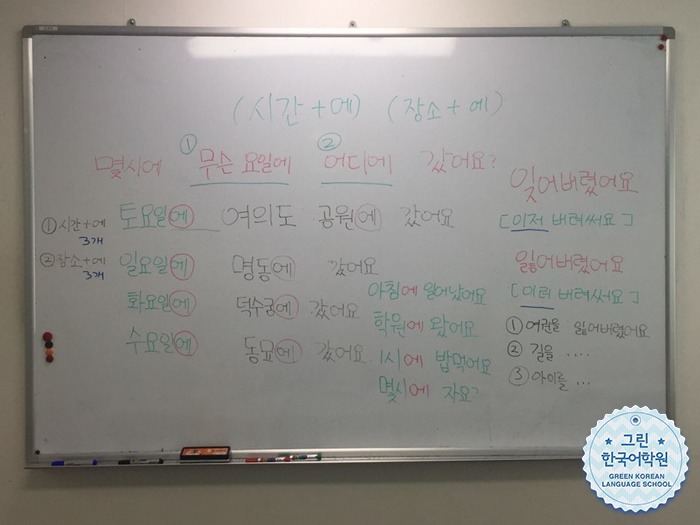 (시간+에) (장소+에)
① ②
몇시에 무슨 요일에 어디에 갔어요?
① 시간+에
3개
② 장소+에
3개
토요일에 여의도 공원에 갔어요
일요일에 명동에 갔어요
화요일에 덕수궁에 갔어요
수요일에 동묘에 갔어요
아침에 일어났어요
학원에 왔어요
1시에 밥먹어요
몇시에 자요?
잊어버렸어요
[이저 버려써요]
잃어버렸어요
[이러 버려써요]
① 여권을 잃어버렸어요
② 길을 ....
③ 아이를 ...
그린
한국어학원
GREEN KOREAN
LANGUAGE SCHOOL